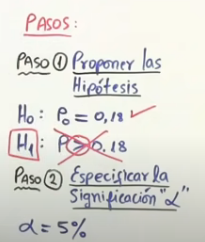 PASOS:
PASO ① Proponer las
Hipótesis
H₀: P₀ = 0,18 ✓
H₁ P > 0.18
PASO ② Especificar la
Significación "α"
α = 5%